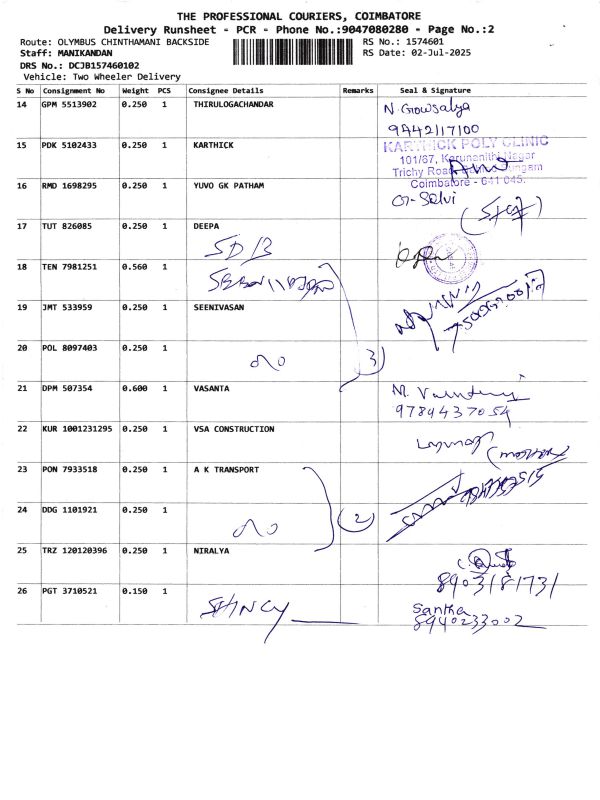 THE PROFESSIONAL COURIERS, COIMBATORE
Delivery Runsheet - PCR - Phone No.:9047080280 - Page No.:2
Route: OLYMBUS CHINTHAMANI BACKSIDE
RS No.: 1574601
Staff: MANIKANDAN
RS Date: 02-Jul-2025
DRS No.: DCJB157460102
Vehicle: Two Wheeler Delivery
S No Consignment No Weight PCS Consignee Details Remarks Seal & Signature
14 GPM 5513902 0.250 1 THIRULOGACHANDAR N. Gowsalya
9442117100
15 PDK 5102433 0.250 1 KARTHICK
KARTHICK POLY CLINIC
101/67, Karunanithi Nagar
Trichy Road
Coimbatore - 641 045.
16 RMD 1698295 0.250 1 YUVO GK PATHAM G-Selvi
17 TUT 826085 0.250 1 DEEPA
18 TEN 7981251 0.560 1
19 JMT 533959 0.250 1 SEENIVASAN
20 POL 8097403 0.250 1
3
21 DPM 507354 0.600 1 VASANTA
9789437054
22 KUR 1001231295 0.250 1 VSA CONSTRUCTION
23 PON 7933518 0.250 1 A K TRANSPORT
24 DDG 1101921 0.250 1
2
25 TRZ 120120396 0.250 1 NIRALYA
8903181731
26 PGT 3710521 0.150 1
Santha
8940233002